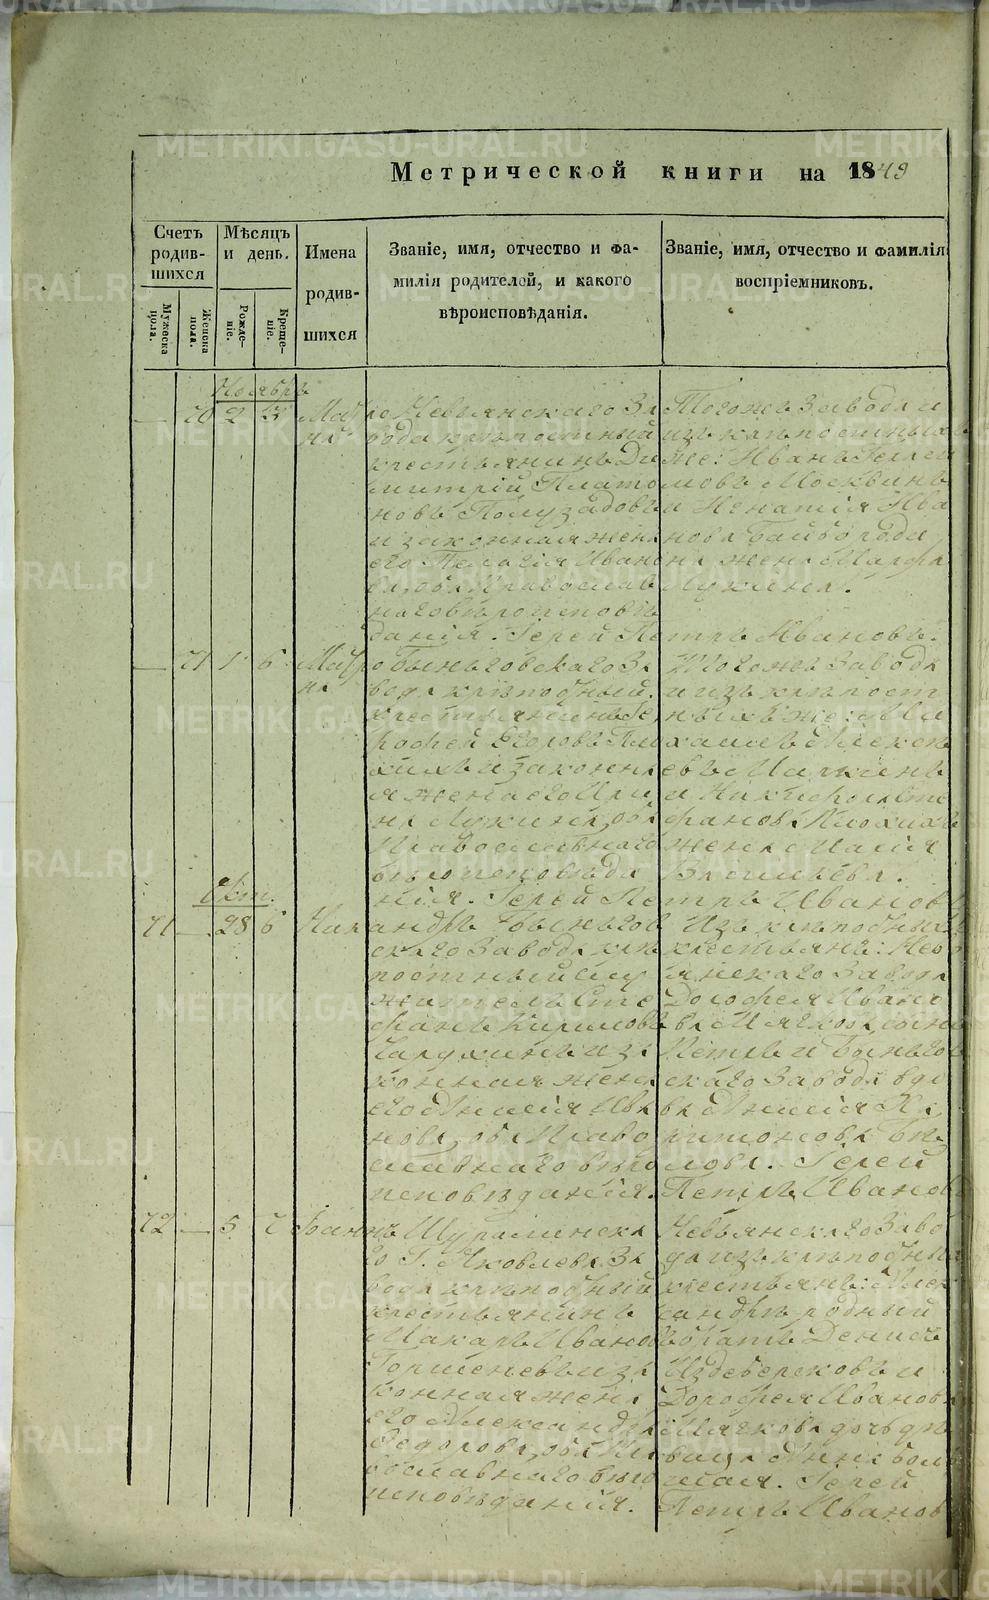 Метрической книги на 1849
Счетъ родив-шихся
Мѣсяцъ и день.
Имена родив-шихся
Званіе, имя, отчество и фа-
милія родителей, и какого
вѣроисповѣданія.
Званіе, имя, отчество и фамилія
воспріемниковъ.
Мужеска пола.
Женска пола.
Рожде-ніе.
Креще-ніе.
Ноябрь
— 70 2 3 Мат
ро
на
Невьянскаго За
вода крѣпостный
крестьянинъ Ди
митрій Плато
новъ Полузадовъ
и законная жена
его Пелагія Ивано
ва, оба Православ
наго вѣроисповѣ
данія. Іерей Петръ Ивановъ.
Тогожъ Завода и
изъ крѣпостныхъ
же: Иванъ
мовъ Москвинъ
и Игнатія Ива
нова Байбородина
жена Марѳа
— 71 1 6 Мат
ро
на
Быньговскаго За
вода крѣпостный
крестьянинъ
рофей Егоровъ Пло
хихъ и законна
я жена его Ири
на Лукина, оба
Православнаго
вѣроисповѣда
нія. Іерей Петръ Ивановъ
Тогоже Завода
и изъ крѣпост
ныхъ же: Ми
хаилъ Алексѣ
евъ Маркинъ
и Никифора Сте
фанова Плохихъ
жена Марія
Васильева.
Окт.
71 — 28 6 Ник
андръ
Быньгов
скаго Завода крѣ
постный слу
житель Сте
фанъ Кириловъ
и за
конная жена
его Анисія Ива
нова, оба Право
славнаго вѣро
исповѣданія.
Изъ крѣпостныхъ
крестьянъ: Невь
янскаго Завода
Дорофея Ивано
ва Мячкова сынъ
Петръ и Быньгов
скаго Завода вдо
ва Анисія Ха
ритонова Бѣ
лова. Іерей
Петръ Ивановъ
72 — 5 7 Іоаннъ
Шуралинска
го Г. Яковлева За
вода крѣпостный
крестьянинъ
Макаръ Ивановъ
Горшеневъ и за
конная жена
его Александра
Федорова, оба Пра
вославнаго вѣро
исповѣданія.
Невьянскаго Заво
да изъ крѣпостныхъ
крестьянъ: Алек
сандръ родный
братъ Денисъ
Издебрсковъ и
Дорофея Иванова
Мячкова дочь дѣ
вица Анна боль
шая. Іерей
Петръ Ивановъ
METRIKI.GASO-URAL.RU